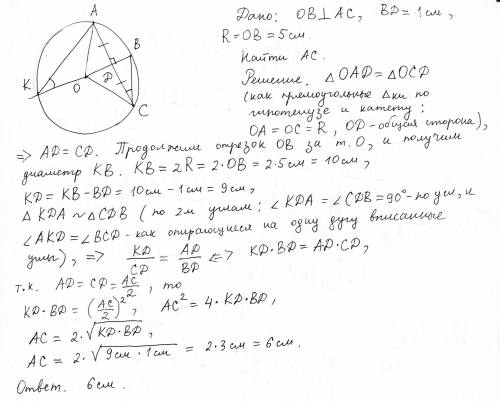 A
B
D
O
K
C
Дано: OB⊥AC, BD = 1см,
R = OB = 5см.
Найти AC.
Решение. △OAD = △OCD
(как прямоугольные △ки по
гипотенузе и катету:
OA = OC = R, OD - общая сторона),
=> AD = CD. Продолжим отрезок OB за т. O, и получим
диаметр KB. KB = 2R = 2·OB = 2·5см = 10см,
KD = KB - BD = 10см - 1см = 9см,
△KDA ~ △CDB (по 2м углам: ∠KDA = ∠CDB = 90° - по усл, и
∠AKD = ∠BCD - как опирающиеся на одну дугу вписанные
углы), => KD/CD = AD/BD <=> KD·BD = AD·CD,
т.к. AD = CD = AC/2, то
KD·BD = (AC/2)², AC² = 4·KD·BD,
AC = 2·√KD·BD,
AC = 2·√9см·1см = 2·3см = 6см.
Ответ. 6см.